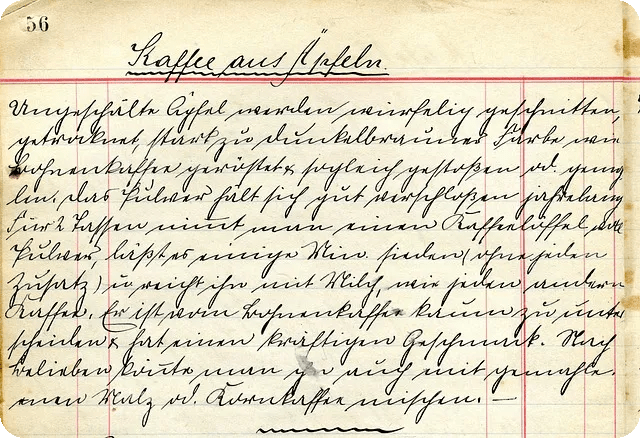 56
Kaffee aus Äpfeln.
Ungeschälte Äpfel werden würfelig geschnitten,
getrocknet, stark zu dunkelbrauner Farbe wie
Bohnenkaffee geröstet & sogleich gestoßen od. gemah
len. Das Pulver hält sich gut verschloßen jahrelang
Für 2 Tassen nimt man einen Kaffeelöffel voll
Pulver, läßt es einige Min. sieden (ohne jeden
Zusatz) u reicht ihn mit Milch, wie jeden andern
Kaffee. Er ist vom Bohnenkaffee kaum zu unter
scheiden & hat einen kräftigen Geschmack. Nach
Belieben könnte man ihn auch mit gemahle
nen Malz od. Kornkaffee mischen. —